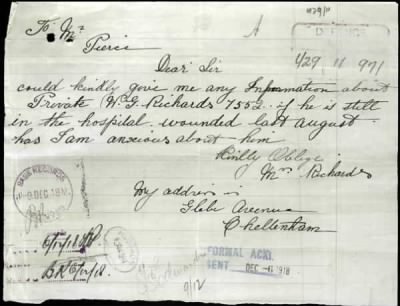 To Mr
Pierce
Dear Sir
could kindly give me any Information about
Private W. G. Richards 7552 if he is still
in the hospital wounded last August
has I am anxious about him
Kindly Oblige
Mrs Richards
My address is
Glebe Avenue
Cheltenham
DEFENCE
4/29 11 971
BASE RECORDS
9 DEC 1918
6/12/18
B.R. 6/12/18
FORMAL ACK.
SENT DEC -6 1918
9/12